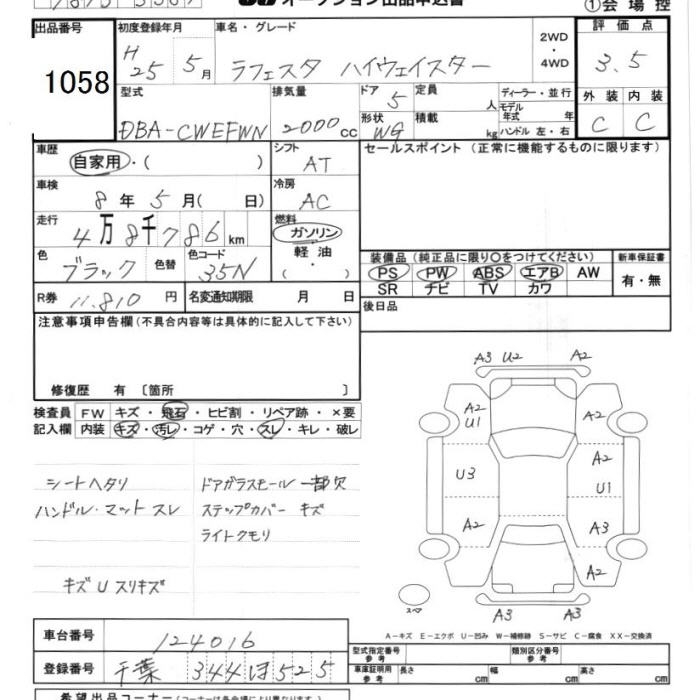 オークション出品申込書
①会場控
出品番号
1058
初度登録年月
H25 5月
車名・グレード
ラフェスタ ハイウェイスター
2WD・4WD
評価点
3.5
型式
DBA-CWEFWN
排気量
2000cc
ドア
5
形状
WG
定員
人
積載
kg
ディーラー・並行
モデル年式 年
ハンドル 左・右
外装 内装
C C
車歴
自家用・( )
シフト
AT
車検
8年5月( 日)
冷房
AC
走行
4万8千786km
燃料
ガソリン・軽油・( )
色
ブラック
色替
色コード
35N
R券
11.810円
名変通知期限 月 日
セールスポイント(正常に機能するものに限ります)
装備品(純正品に限り○をつけてください)
PS PW ABS エアB AW
SR ナビ TV カワ
新車保証書
有・無
後日品
注意事項申告欄(不具合内容等は具体的に記入して下さい)
修復歴 有〔箇所 〕
検査員記入欄
FW キズ・飛石・ヒビ割・リペア跡・×要
内装 キズ・汚レ・コゲ・穴・スレ・キレ・破レ
シートヘタリ
ハンドル・マット スレ
キズ U スリキズ
ドアガラスモール一部欠
ステップカバー キズ
ライトクモリ
A3 U2 A2
A2 U1
A2
U3
A2
U1
A2
A3
A2
A3 A3
スペア
A-キズ E-エクボ U-凹み W-補修跡 S-サビ C-腐食 XX-交換済
車台番号
124016
登録番号
千葉 344 ほ 525
型式指定番号 参考
類別区分番号 参考
車庫証明用 参考 長さ cm 幅 cm 高さ cm
希望出品コーナー